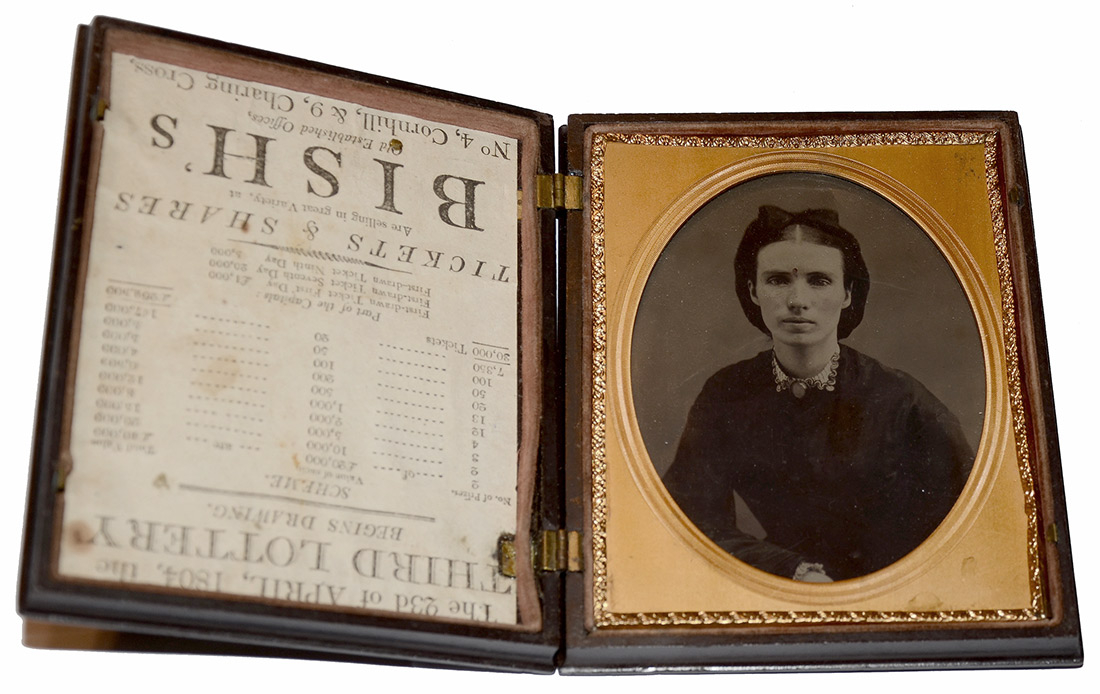 The 23d of APRIL, 1804, the
THIRD LOTTERY
BEGINS DRAWING.
SCHEME.
No. of Prizes. Value of each. Total Value
2 of £20,000 are £40,000
2 10,000 20,000
3 5,000 15,000
4 2,000 8,000
12 1,000 12,000
13 500 6,500
20 200 4,000
50 100 5,000
100 50 5,000
7,350 20 147,000
30,000 Tickets £262,500
Part of the Capitals:
First-drawn Ticket First Day £1,000
First-drawn Ticket Seventh Day 20,000
First-drawn Ticket Ninth Day 5,000
TICKETS & SHARES
Are selling in great Variety, at
BISH'S
Old Established Offices,
No 4, Cornhill, & 9, Charing Cross,